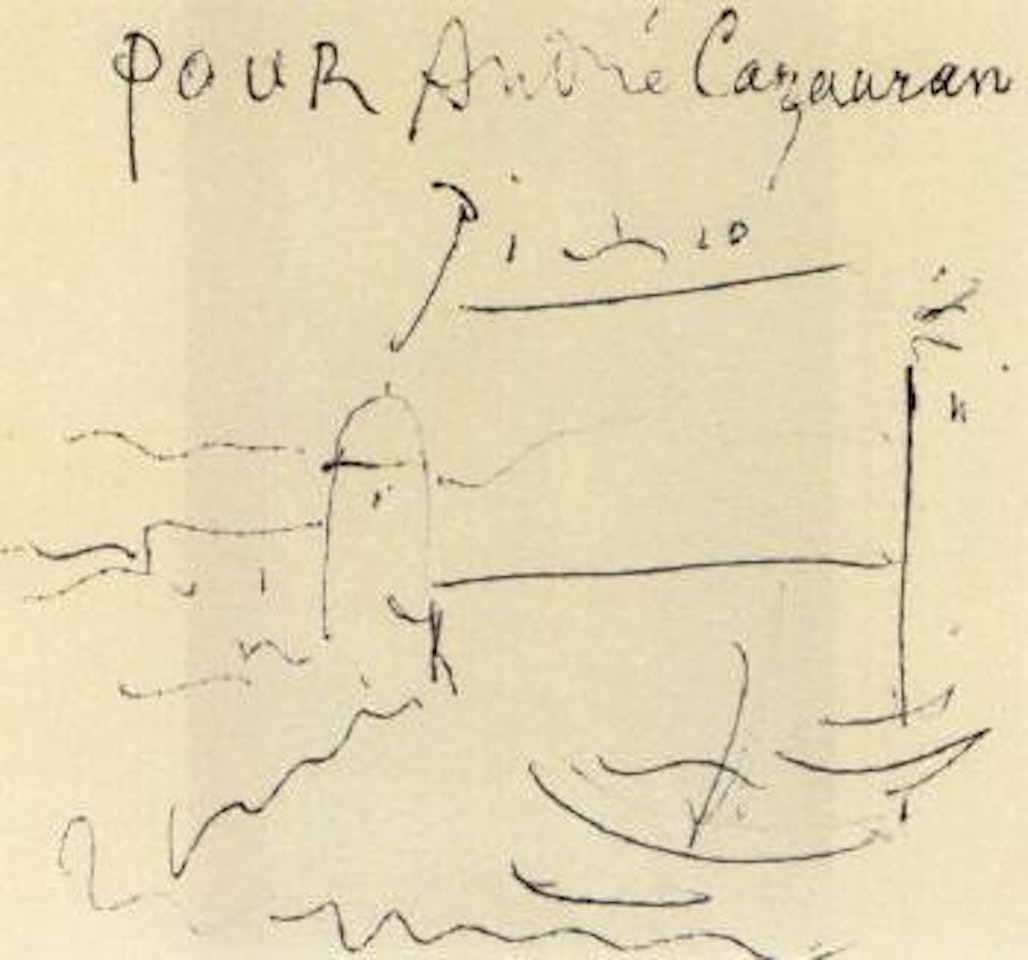 POUR André Cazauran
Picasso